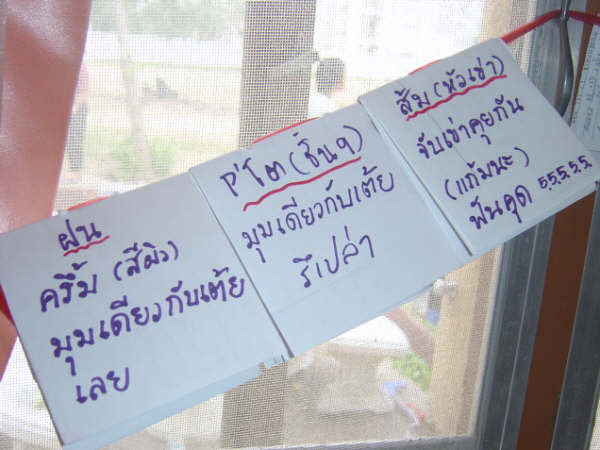 ฝน
ครึ้ม (สีผิว)
มุมเดียวกับเต้ย
เลย
P'โต (ชั้น 9)
มุมเดียวกับเต้ย
รึเปล่า
ส้ม (หัวเข่า)
จับเข่าคุยกัน
(แก้มนะ)
ฟันคุด 5,5,5,5,5